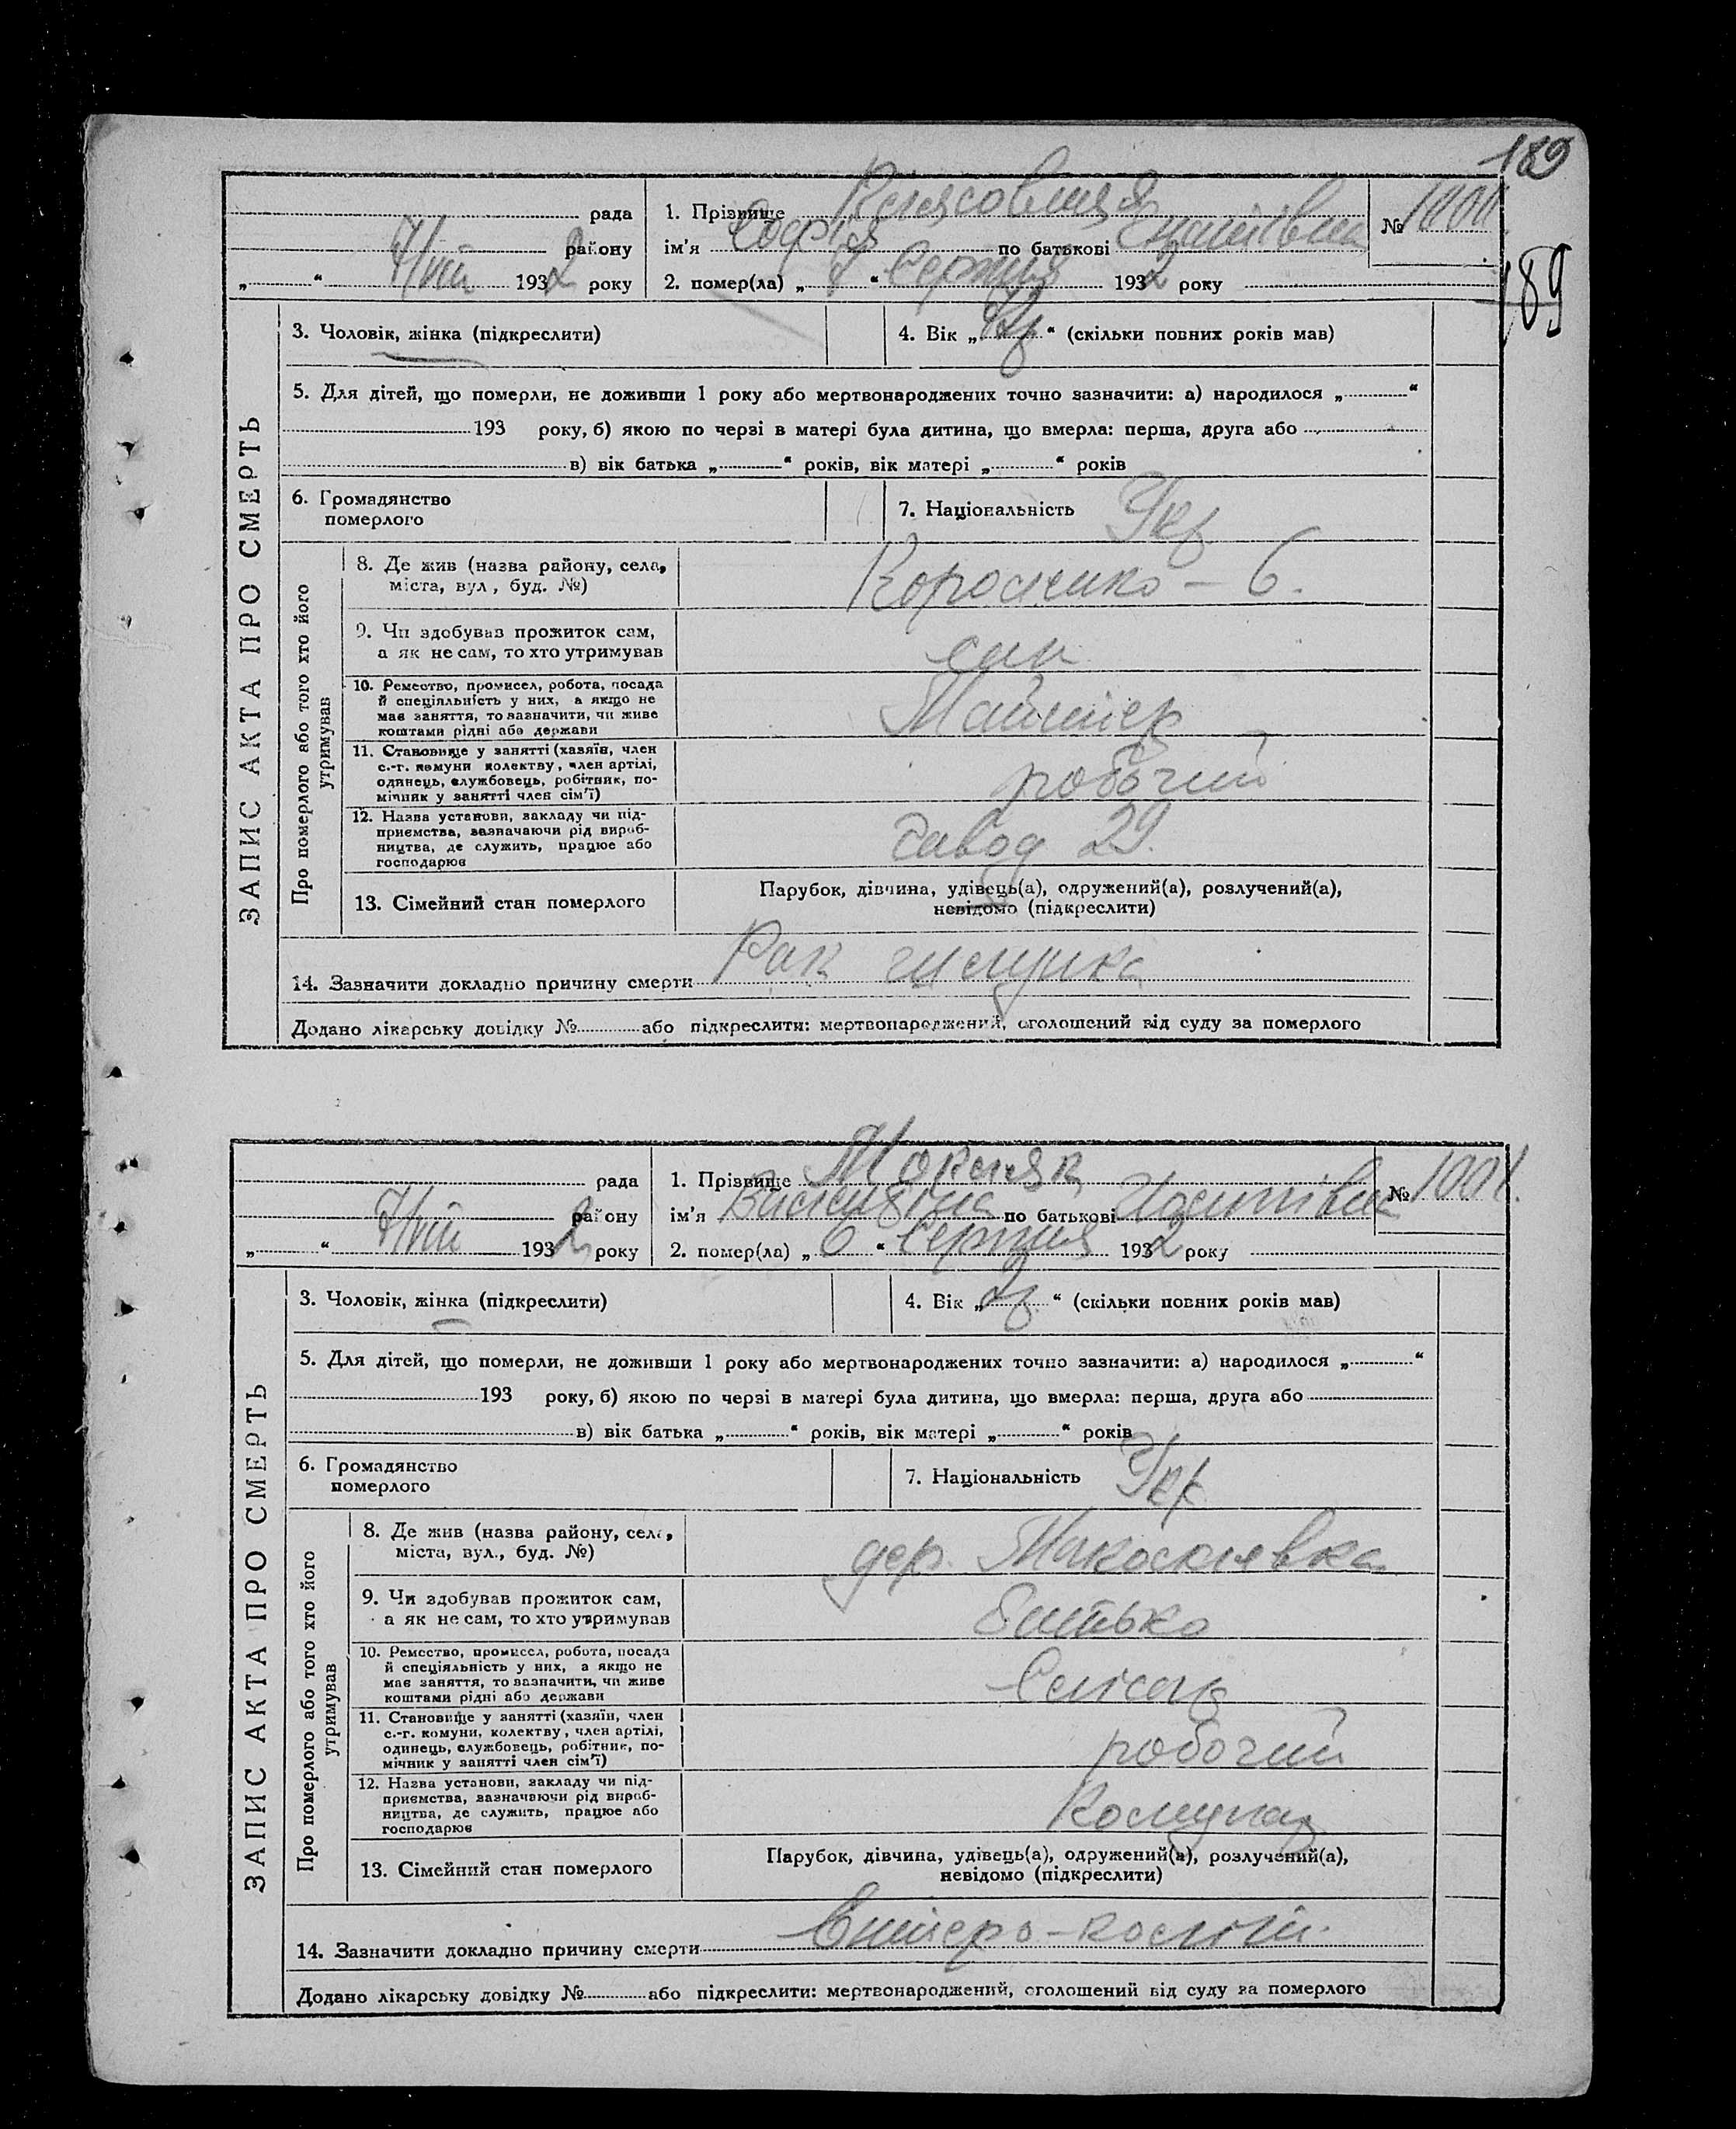 189
189
рада
району
„ “ 7/VIII 1932 року
1. Прізвище
ім'я Софія по батькові Гнатівна
2. помер(ла) „7“ Серпня 1932 року
№
ЗАПИС АКТА ПРО СМЕРТЬ
3. Чоловік, жінка (підкреслити)
4. Вік „ “ (скільки повних років мав)
5. Для дітей, що померли, не доживши 1 року або мертвонароджених точно зазначити: а) народилося „ “
193 року, б) якою по черзі в матері була дитина, що вмерла: перша, друга або
в) вік батька „ “ років, вік матері „ “ років
6. Громадянство
померлого
7. Національність Укр
Про померлого або того хто його
утримував
8. Де жив (назва району, села,
міста, вул, буд. №)
Короленко – 6.
9. Чи здобував прожиток сам,
а як не сам, то хто утримував
син
10. Ремество, промисел, робота, посада
й спеціяльність у них, а якщо не
має заняття, то зазначити, чи живе
коштами рідні або держави
Майстер
11. Становище у занятті (хазяїн, член
с.-г. комуни колектву, член артілі,
одинець, службовець, робітник, по-
мічник у занятті член сім'ї)
робочий
12. Назва установи, закладу чи під-
приємства, зазначаючи рід вироб-
ництва, де служить, працює або
господарює
Завод 29.
13. Сімейний стан померлого
Парубок, дівчина, удівець(а), одружений(а), розлучений(а),
невідомо (підкреслити)
14. Зазначити докладно причину смерти Рак
Додано лікарську довідку № або підкреслити: мертвонароджений, оголошений від суду за померлого
рада
району
„ “ 7/VIII 1932 року
1. Прізвище Мокляк
ім'я по батькові
2. помер(ла) „6“ Серпня 1932 року
№ 1001.
ЗАПИС АКТА ПРО СМЕРТЬ
3. Чоловік, жінка (підкреслити)
4. Вік „2р“ (скільки повних років мав)
5. Для дітей, що померли, не доживши 1 року або мертвонароджених точно зазначити: а) народилося „ “
193 року, б) якою по черзі в матері була дитина, що вмерла: перша, друга або
в) вік батька „ “ років, вік матері „ “ років
6. Громадянство
померлого
7. Національність Укр
Про померлого або того хто його
утримував
8. Де жив (назва району, села,
міста, вул., буд. №)
дер.
9. Чи здобував прожиток сам,
а як не сам, то хто утримував
Батько
10. Ремество, промисел, робота, посада
й спеціяльність у них, а якщо не
має заняття, то зазначити, чи живе
коштами рідні або держави
Слюсар
11. Становище у занятті (хазяїн, член
с.-г. комуни, колектву, член артілі,
одинець, службовець, робітник, по-
мічник у занятті член сім'ї)
робочий
12. Назва установи, закладу чи під-
приємства, зазначаючи рід вироб-
ництва, де служить, працює або
господарює
Комунар
13. Сімейний стан померлого
Парубок, дівчина, удівець(а), одружений(а), розлучений(а),
невідомо (підкреслити)
14. Зазначити докладно причину смерти Ентеро-коліт.
Додано лікарську довідку № або підкреслити: мертвонароджений, оголошений від суду за померлого